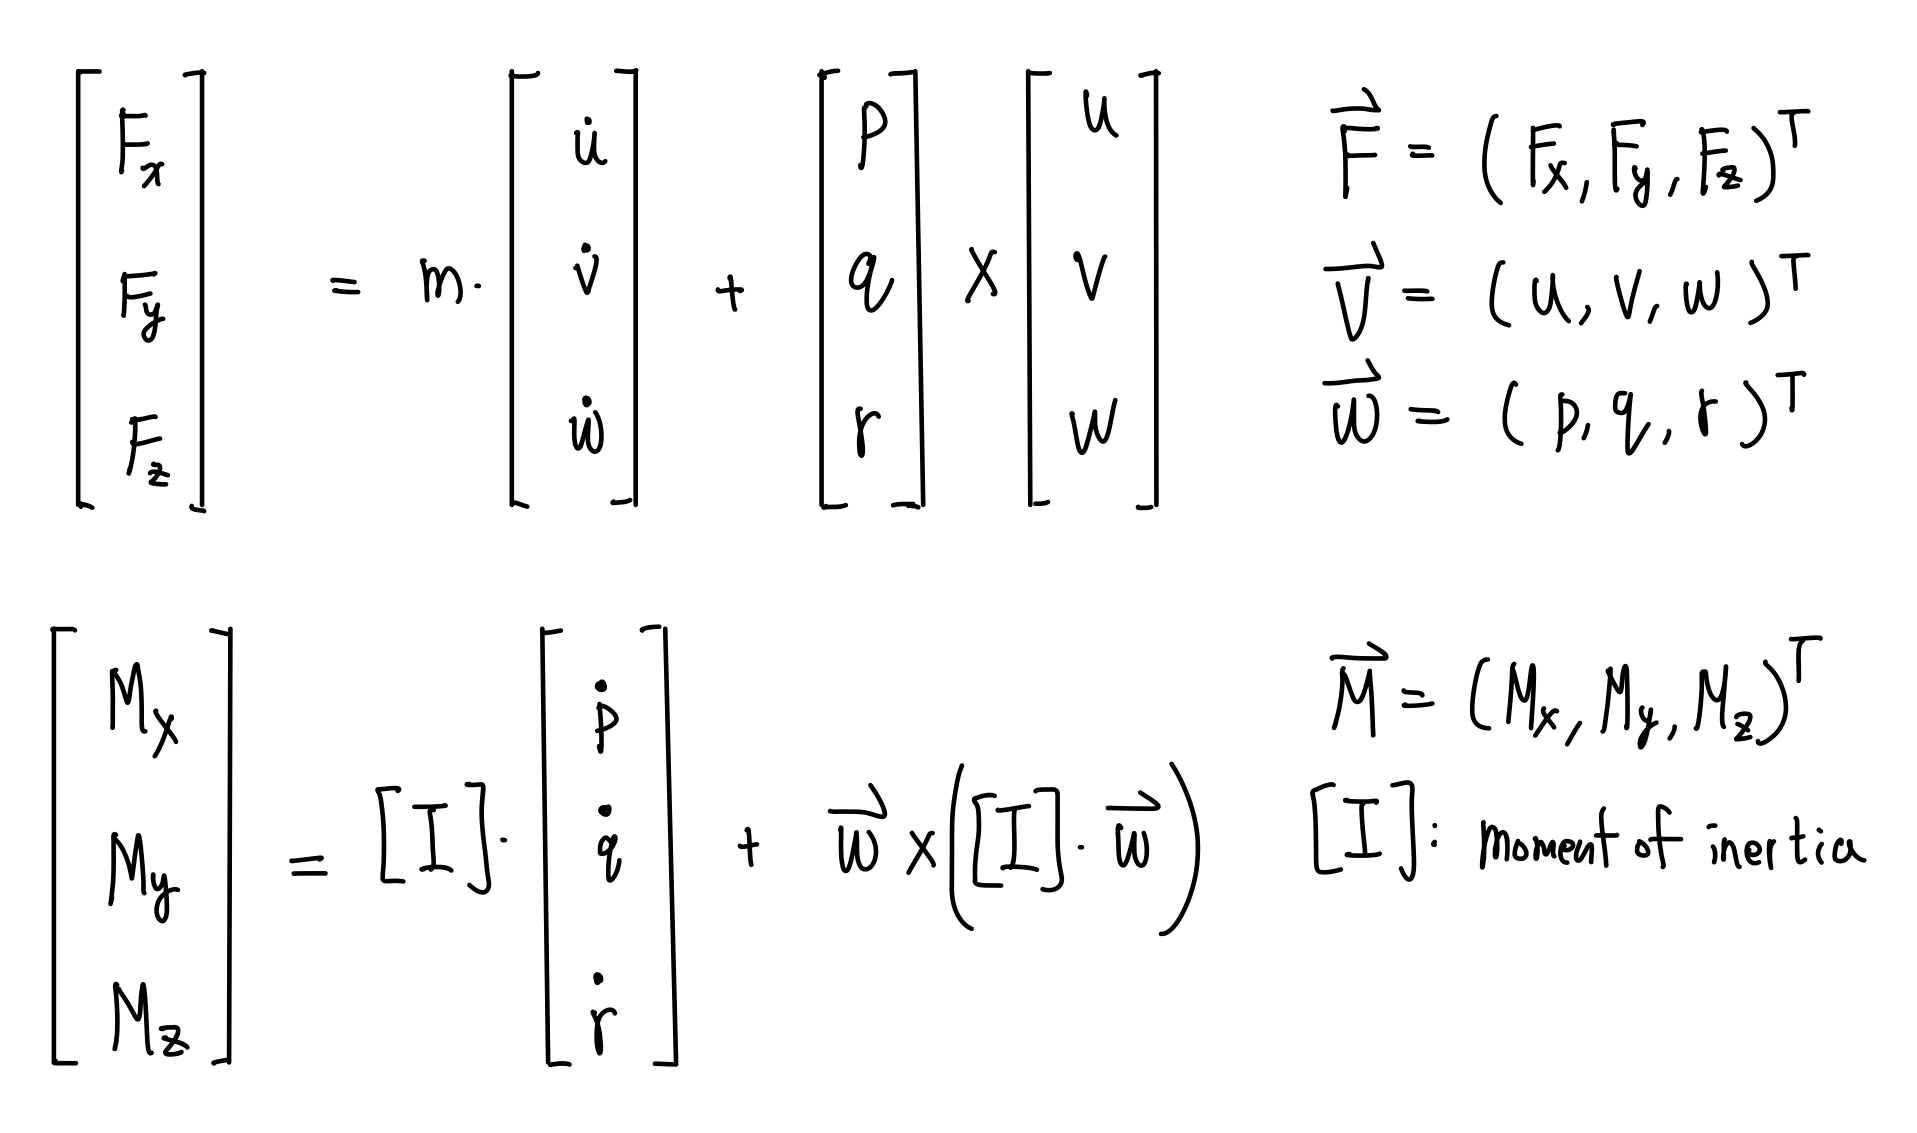 [F_x F_y F_z] = m · [u̇ v̇ ẇ] + [p q r] × [u v w]
F⃗ = (F_x, F_y, F_z)^T
V⃗ = (u, v, w)^T
w⃗ = (p, q, r)^T
[M_x M_y M_z] = [I] · [ṗ q̇ ṙ] + w⃗ × ([I] · w⃗)
M⃗ = (M_x, M_y, M_z)^T
[I] : moment of inertia